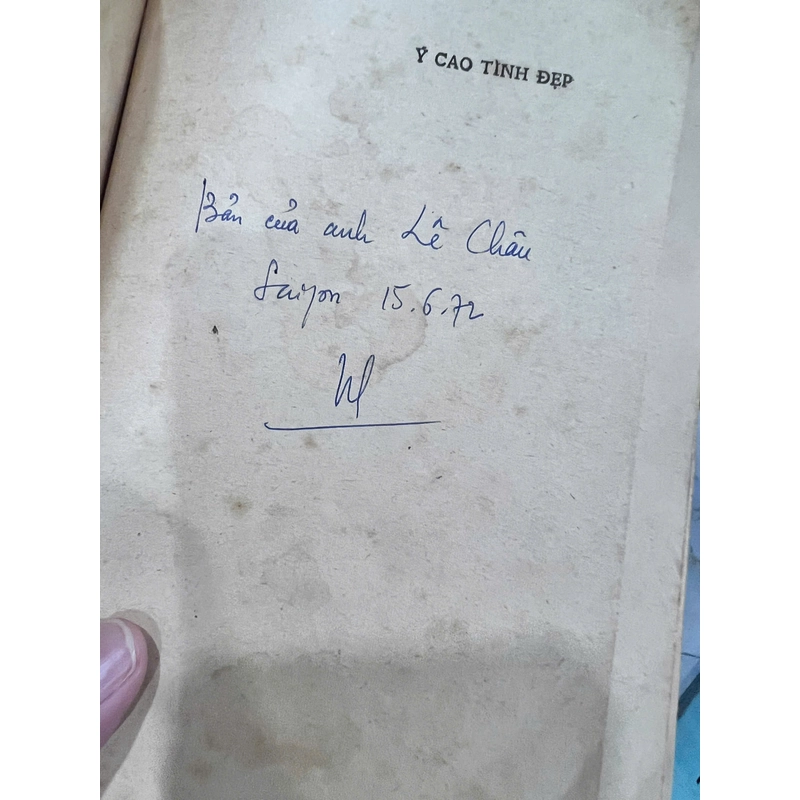 Ý CAO TÌNH ĐẸP
Bản của anh Lê Châu
Saigon 15.6.72